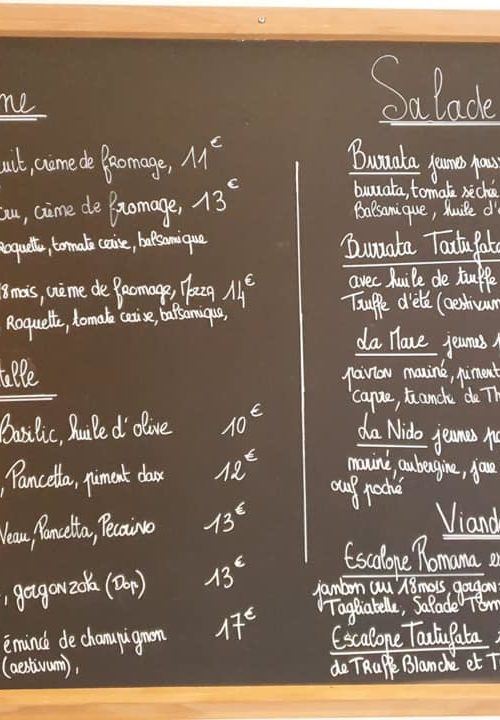 ne
uit, crème de fromage, 11€
cru, crème de fromage, 13€
Roquette, tomate cerise, balsamique
18 mois, crème de fromage, Mozza 14€
Roquette, tomate cerise, balsamique,
telle
Basilic, huile d'olive 10€
, Pancetta, piment doux 12€
Veau, Pancetta, Pecorino 13€
, gorgonzola (Dop) 13€
émincé de champignon 17€
(aestivum),
Salade
Burrata jeunes pous
burrata, tomate séché
Balsamique, huile d'o
Burrata Tartufata
avec huile de truffe
Truffe d'été (aestivum
La Mare jeunes p
poivron mariné, piment
Capre, tranche de Th
La Nido jeunes po
mariné, aubergine, jau
œuf poché
Viand
Escalope Romana es
jambon cru 18 mois, gorgonz
Tagliatelle, Salade Tom
Escalope Tartufata
de Truffe Blanche et T